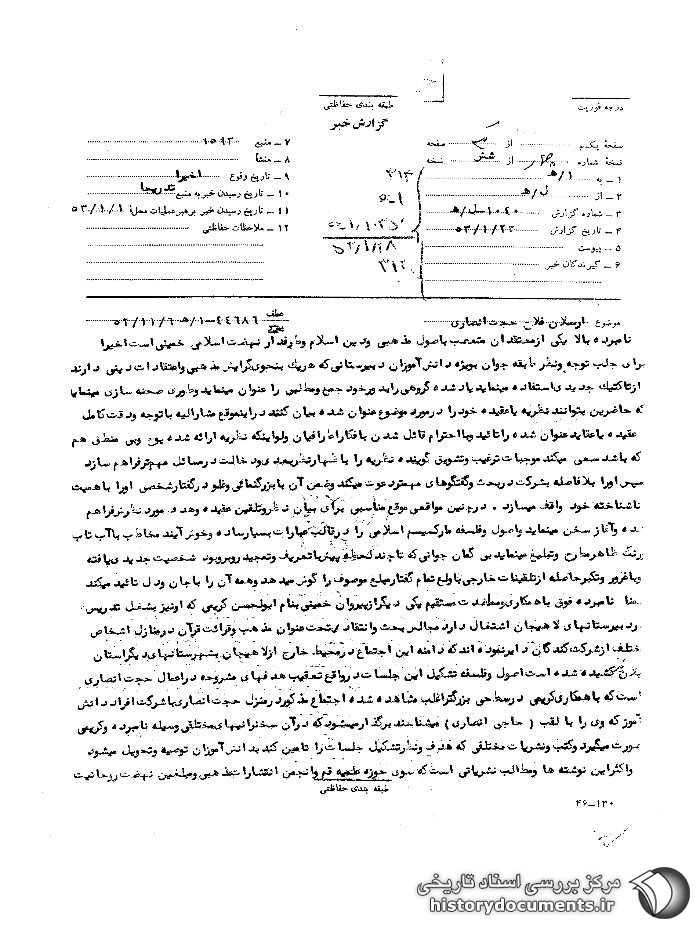 طبقه بندی حفاظتی
درجه فوریت
گزارش خبر
صفحهٔ یکم از صفحه
نسخهٔ شماره از شش نسخه
۱ ـ به ۱/ﻫ
۲ ـ از ل/ﻫ
۳ ـ شماره گزارش ۱۰۴۰-ل/ﻫ
۴ ـ تاریخ گزارش ۵۳/۱/۲۲
۵ ـ پیوست
۶ ـ گیرندگان خبر
۳۱۲
۷ ـ منبع ۱۵۹۳
۸ ـ منشأ
۹ ـ تاریخ وقوع اخیرا
۱۰ ـ تاریخ رسیدن خبر به منبع تدریجا
۱۱ ـ تاریخ رسیدن خبر برهبر عملیات محل ۵۳/۱/۱
۱۲ ـ ملاحظات حفاظتی
موضوع ارسلان فلاح حجت انصاری عطف ۴۴۶۸۶-۱/ﻫ-۵۲/۱۱/۶
نامبرده بالا یکی ازمعتقدان متعصب باصول مذهبی ودین اسلام وطرفدار نهضت اسلامی خمینی است اخیرا
برای جلب توجه ونظر طبقه جوان بویژه دانش آموزان دبیرستانی که هریک بنحوی گرایش مذهبی واعتقادات دینی دارند
ازتاکتیک جدیدی استفاده مینماید یاد شده گروهی را بدور خود جمع ومطالبی را عنوان مینماید وطوری صحنه سازی مینماید
که حاضرین بتوانند نظریه یا عقیده خود را درمورد موضوع عنوان شده بیان کنند دراینموقع مشارالیه با توجه ودقت کامل
عقیده یا عقاید عنوان شده را تائید وبا احترام قائل شدن با فکار اطرافیان ولو اینکه نظریه ارائه شده پوچ وبی منطق هم
که باشد سعی میکند موجبات ترغیب وتشویق گوینده نظریه را با اظهارنظر بعدی ودخالت درمسائل مهمتر فراهم سازد
سپس اورا بلافاصله بشرکت دربحث وگفتگوهای مهمتر دعوت میکند وضمن آن با بزرگنمائی وغلو درگفتار شخصی اورا باهمیت
ناشناخته خود واقف میسازد . درچنین مواقعی موقع مناسبی برای بیان نظر وتلقین عقیده وهدف مورد نظرش فراهم
شده وآغاز سخن مینماید واصول وفلسفه مارکسیسم اسلامی را درقالب عبارات بسیار ساده وخوش آیند مخاطب با آب تاب
ورنگ ظاهر مطرح وتبلیغ مینماید بی گمان جوانی که تا چند لحظه پیش با تعریف وتمجید روبرو بود شخصیت جدیدی یافته
وبا غرور وتکبر حاصله ازتلقینات خارجی با ولع تمام گفتار مبلغ موصوف را گوش میدهد وهمه آن را با جان ودل تائید میکند
ضمنا نامبرده فوق با همکاری ومعاضدت مستقیم یکی دیگر ازپیروان خمینی بنام ابوالحسن کریمی که اونیز بشغل تدریس
در دبیرستانهای لاهیجان اشتغال دارد مجالس بحث وانتقادی تحت عنوان مذهب وقرائت قرآن درمنازل اشخاص
مختلف ازشرکت کنندگان دایر نموده اند که دامنه این اجتماع درمحیط خارج ازلاهیجان بشهرستانهای دیگر استان
گیلان کشیده شده است اصول وفلسفه تشکیل این جلسات درواقع تعقیب هدفهای مشروحه دراعمال حجت انصاری
است که با همکاری کریمی درسطحی بزرگتر اغلب مشاهده شده اجتماع مذکور درمنزل حجت انصاری با شرکت افراد دانش
آموز که وی را با لقب ( حاجی انصاری ) میشناسند برگذار میشود که درآن سخنرانیهای مختلفی وسیله نامبرده وکریمی
صورت میگیرد وکتب ونشریات مختلفی که هدف ونظر تشکیل جلسات را تامین کند بدانش آموزان توصیه وتحویل میشود
واکثراین نوشته ها ومطالب نشریاتی است که سوی حوزه علمیه قم وانجمن انتشارات مذهبی ومبلغین نهضت روحانیت
طبقه بندی حفاظتی
۴۶-۱۳۰
مرکز بررسی اسناد تاریخی
historydocuments.ir